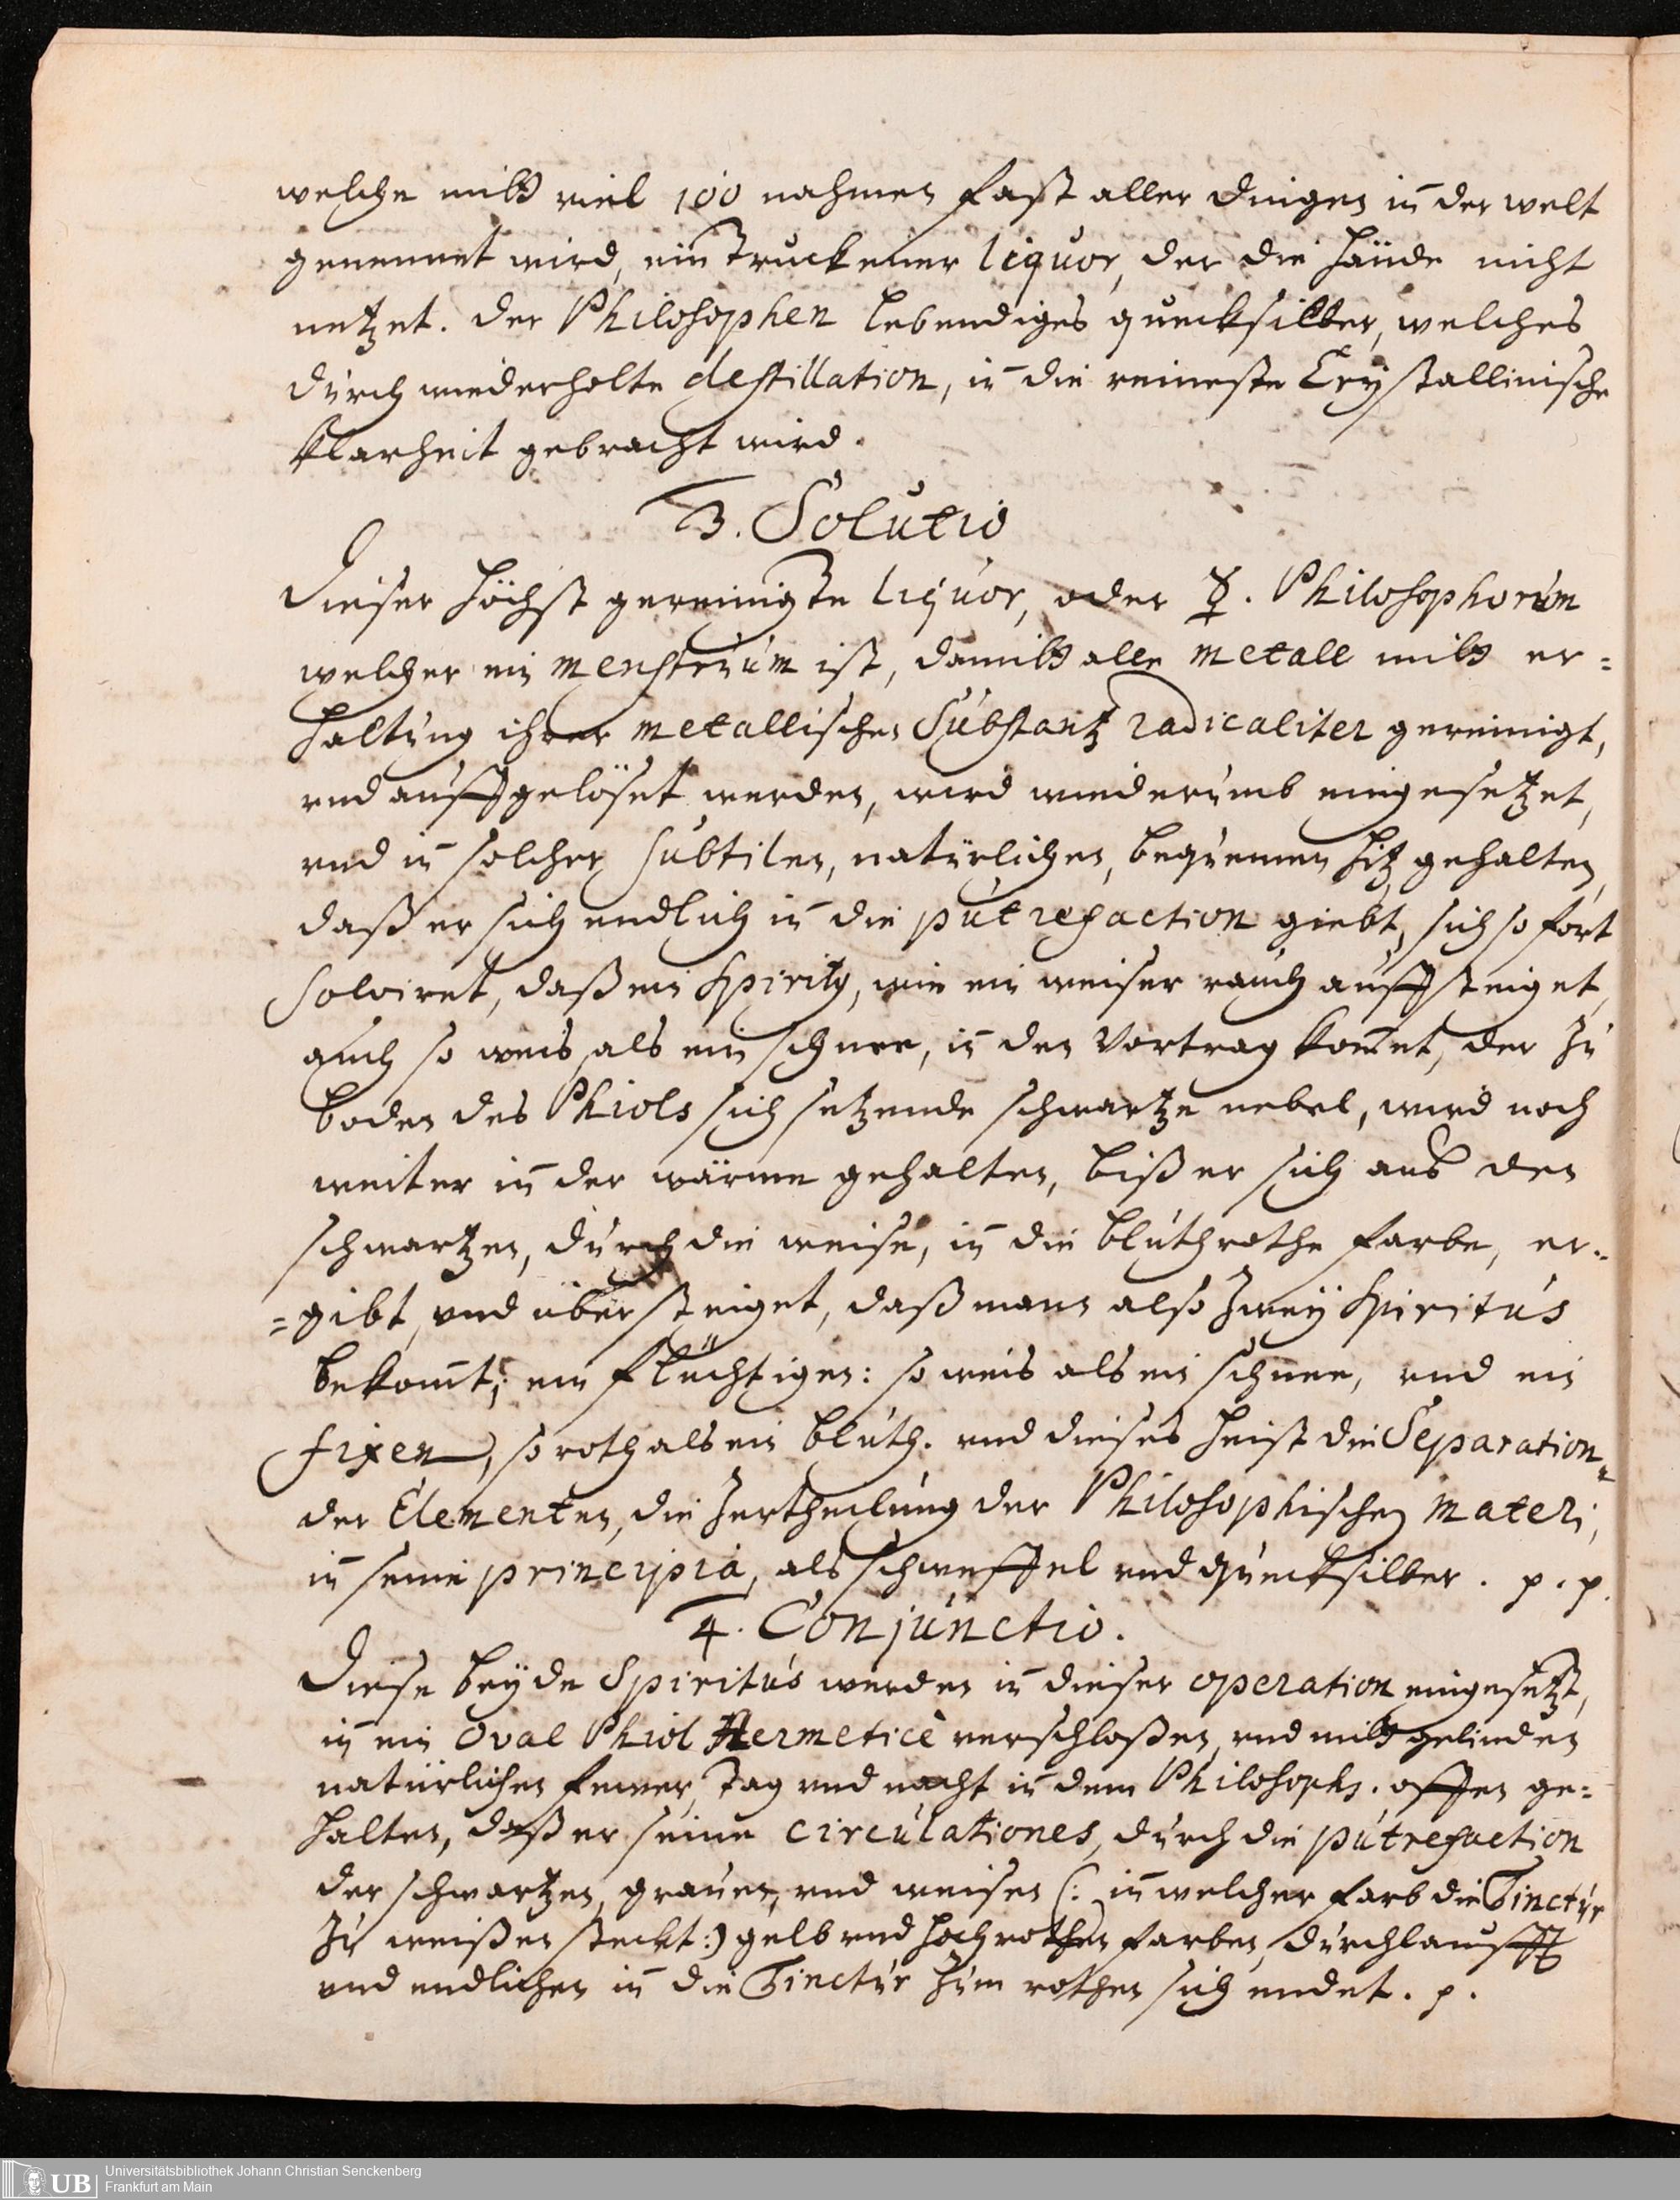 welche mitt viel 100 nahmen fast aller dingen in̄ der welt
genennet wird, ein truckener liquor, der die hände nicht
netzet. der Philosophen lebendiges quecksilber, welches
durch wiederholte destillation, in̄ die reineste Crystallinische
klarheit gebracht wird.
3. Solutio
Dieser höchst gereinigte liquor, oder ☿. Philosophorum
welcher ein menstruum ist, damitt alle metall mitt er=
haltung ihrer metallischen Substantz radicaliter gereinigt,
vnd auffgelöset werden, wird wiederumb eingesetzet,
vnd in̄ solcher subtilen, natürlichen, bequemen hitz gehalten,
daß er sich endlich in̄ die putrefaction giebt, sich so fort
solviret, daß ein Spirity, wie ein weiser rauch auffsteiget,
auch so weis, als ein schnee, in̄ den Vortrag kom̄et, der zu
boden des Phiols sich setzende schwartze nebel, wird noch
weiter in̄ der wärme gehalten, biß er sich aus den
schwartzen, durch die weise, in̄ die bluthrothe farbe, er=
=gibt, vnd übersteiget, daß mann also zweÿ Spiritus
bekom̄t; ein flüchtigen: so weis als ein schnee, vnd ein
fixen, so roth als ein bluth. vnd dieses heist die Separation
der Elementen, die zertheilung der Philosophischen materi,
in̄ seine principia, als schweffel vnd quecksilber. p. p.
4. Conjunctio.
Diese beÿde Spiritus werden in̄ dieser operation eingesetzt,
in̄ ein Oval Phiol Hermeticè verschloßen, vnd mitt gelinden
natürlichen feuer, tag vnd nacht in̄ dem Philosoph. offen ge=
halten, daß er seine circulationes, durch die putrefaction
der schwartzen, grauen, vnd weisen (: in̄ welcher farb die Tinctur
zu weißen steckt:) gelb vnd hochrothen farben, durchlaufft
vnd endlichen in̄ die Tinctur zum rothen sich endet. p.
Universitätsbibliothek Johann Christian Senckenberg
UB
Frankfurt am Main